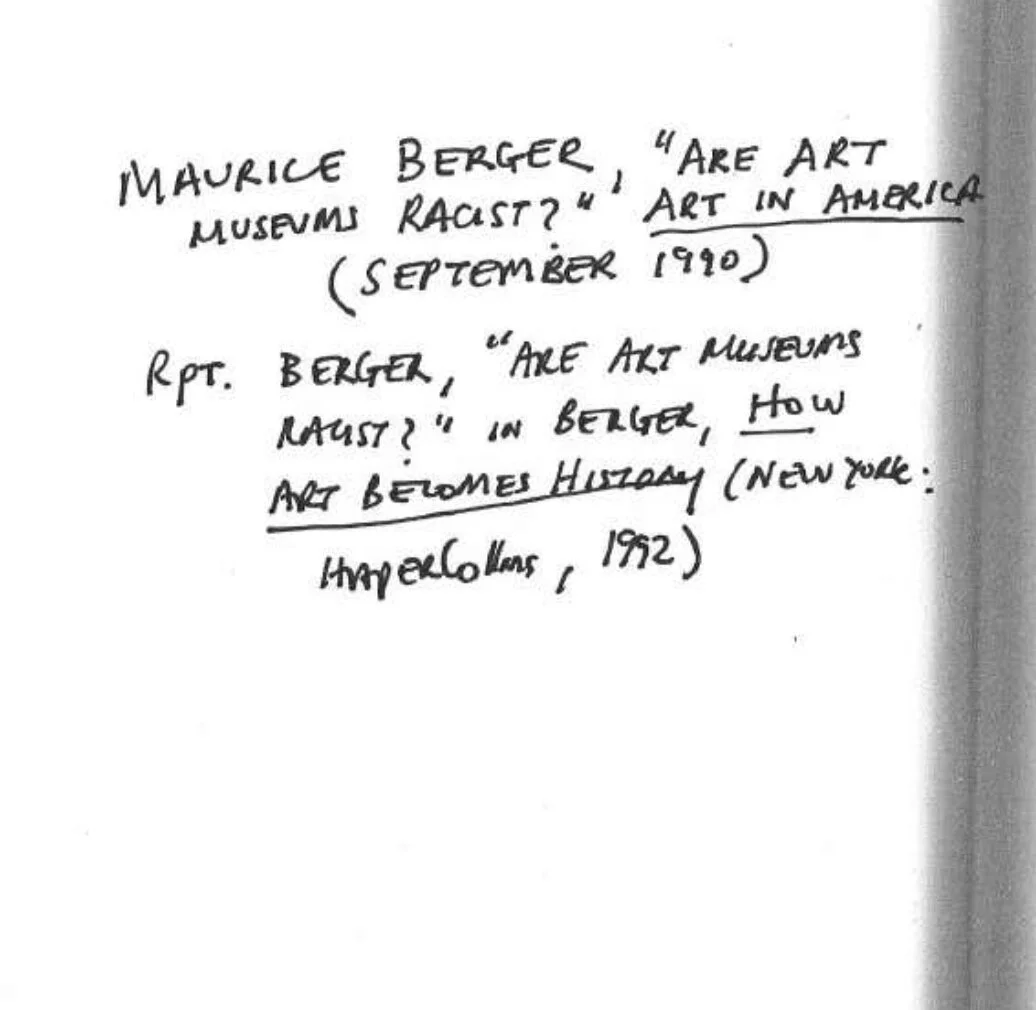 MAURICE BERGER, "ARE ART
MUSEUMS RACIST?" ART IN AMERICA
(SEPTEMBER 1990)
Rpt. BERGER, "ARE ART MUSEUMS
RACIST?" IN BERGER, HOW
ART BECOMES HISTORY (NEW YORK:
HarperCollins, 1992)